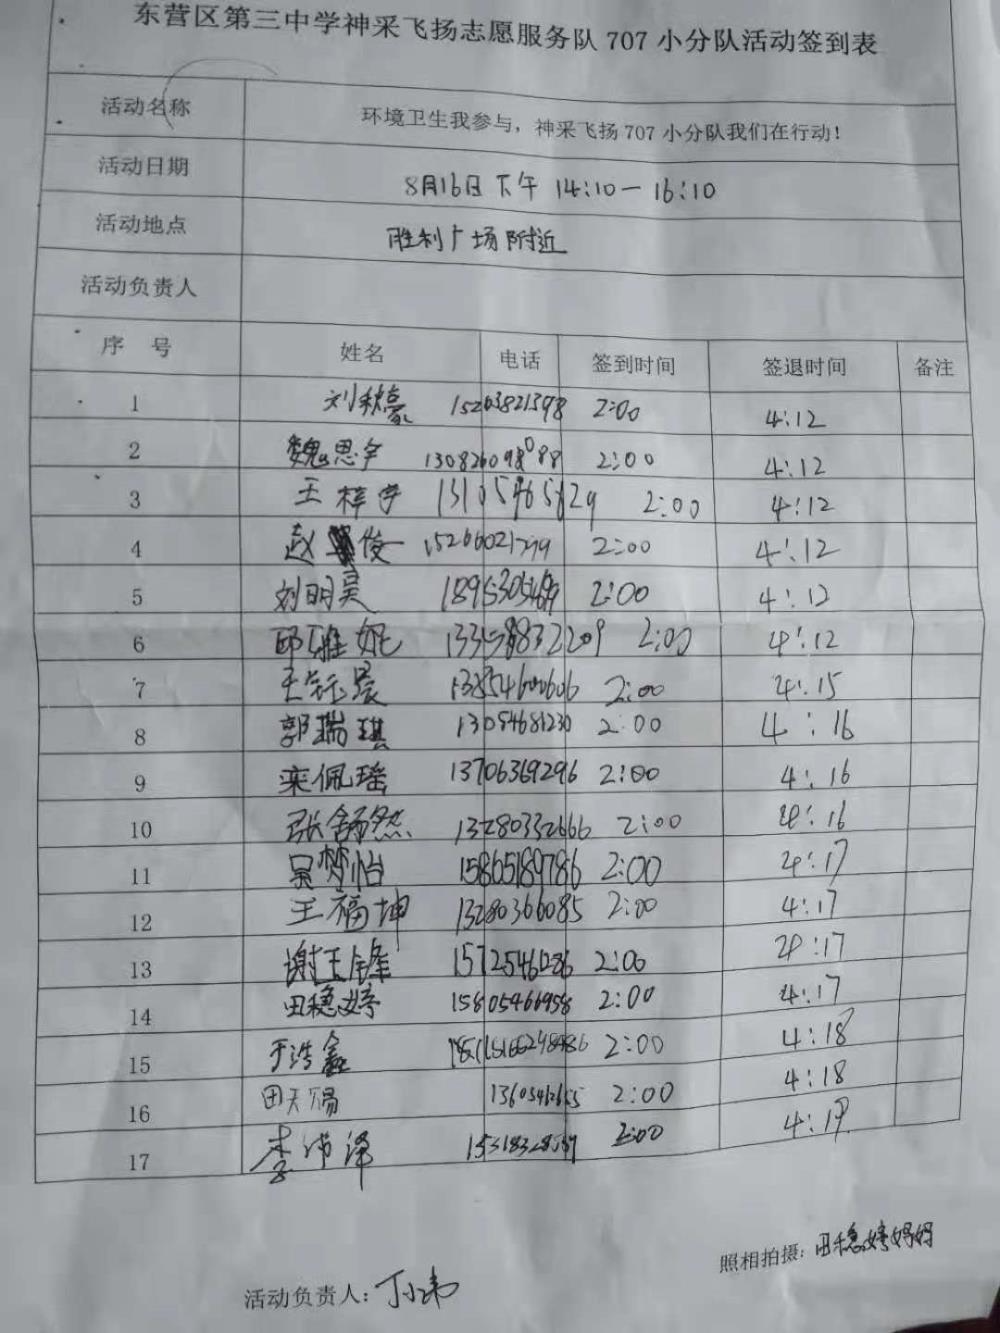 东营区第三中学神采飞扬志愿服务队 707 小分队活动签到表
活动名称 环境卫生我参与，神采飞扬 707 小分队我们在行动！
活动日期 8月16日下午 14:10—16:10
活动地点 胜利广场附近
活动负责人
序 号 姓名 电话 签到时间 签退时间 备注
1 刘秋豪 15263821398 2:00 4:12
2 魏思宇 2:00 4:12
3 王梓宇 2:00 4:12
4 赵俊一 2:00 4:12
5 刘明昊 2:00 4:12
6 邱雅妮 2:00 4:12
7 王钰晨 13854600606 2:00 4:15
8 郭瑞琪 13054681230 2:00 4:16
9 栾佩瑶 13706369296 2:00 4:16
10 张舒然 13280332666 2:00 4:16
11 吴梦怡 15865189786 2:00 4:17
12 王福坤 13280366085 2:00 4:17
13 谢玉锋 15725461286 2:00 4:17
14 田稳婷 15805466958 2:00 4:17
15 于浩鑫 2:00 4:18
16 田天赐 2:00 4:18
17 李沛泽 2:00 4:19
照相拍摄：田稳婷妈妈
活动负责人：丁小玮